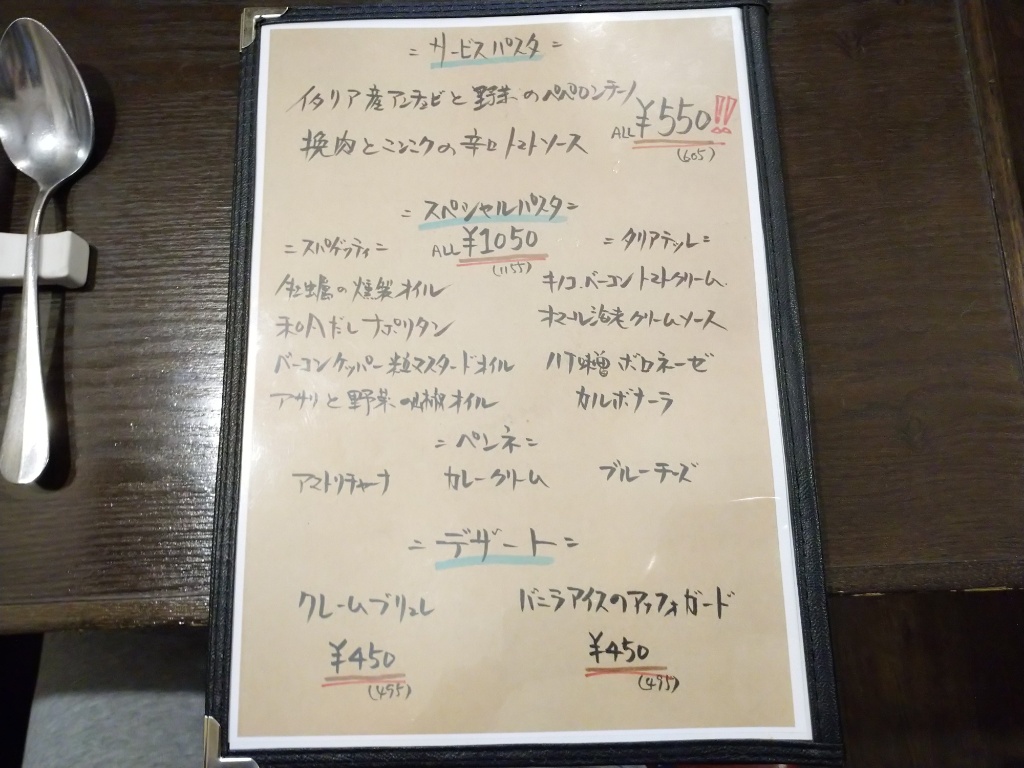 = サービスパスタ =
イタリア産アンチョビと野菜のペペロンチーノ
挽肉とニンニクの辛口トマトソース
ALL ¥550!!
(605)
= スペシャルパスタ =
ALL ¥1050
(1155)
= スパゲッティ =
牡蠣の燻製オイル
和風だしナポリタン
ベーコンケッパー粒マスタードオイル
アサリと野菜の山椒オイル
= タリアテッレ =
キノコ.ベーコントマトクリーム
オマール海老クリームソース
八丁味噌ボロネーゼ
カルボナーラ
= ペンネ =
アマトリチャーナ カレークリーム ブルーチーズ
= デザート =
クレームブリュレ
¥450
(495)
バニラアイスのアッフォガード
¥450
(495)